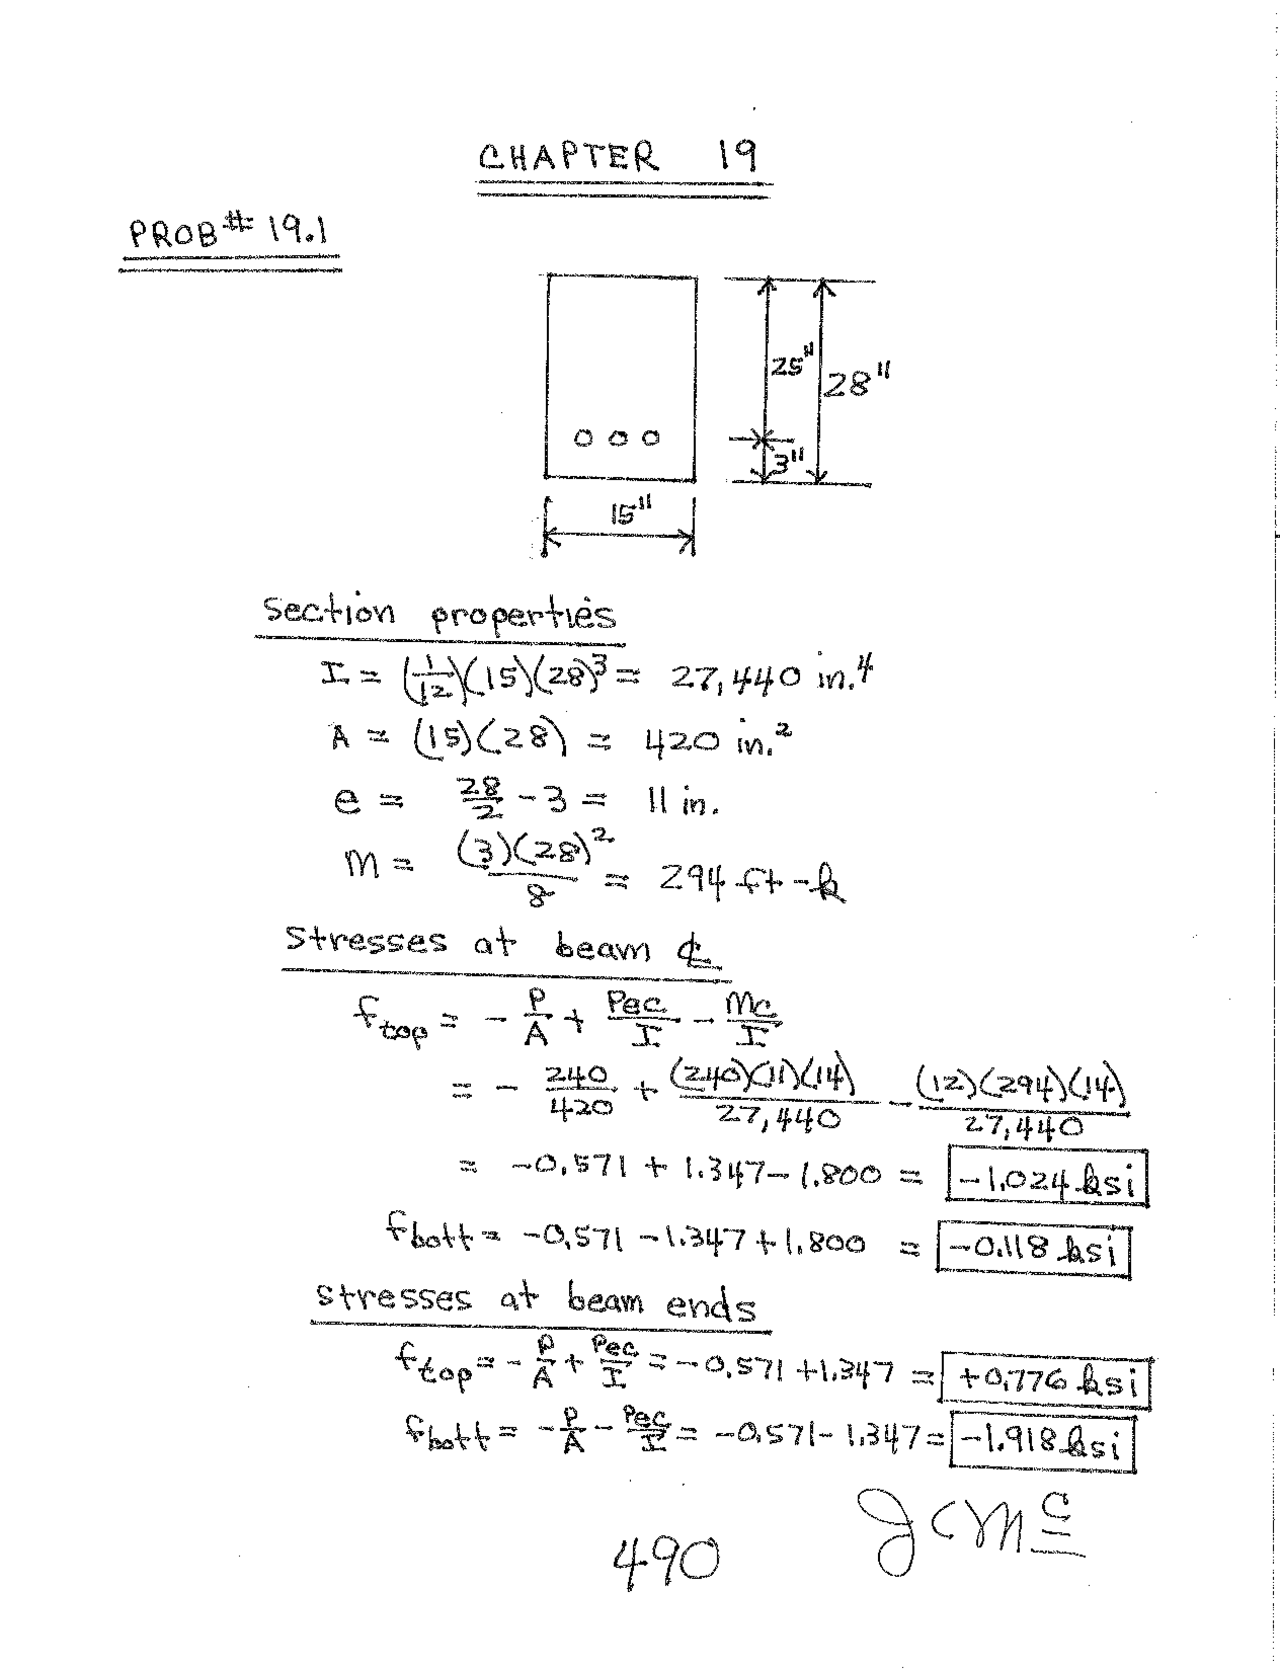 CHAPTER 19
PROB# 19.1
25"
28"
3"
15"
Section properties
I = (1/12)(15)(28)³ = 27,440 in.⁴
A = (15)(28) = 420 in.²
e = 28/2 - 3 = 11 in.
M = (3)(28)²/8 = 294 ft-k
Stresses at beam ℄
f_top = - P/A + Pec/I - Mc/I
= - 240/420 + (240)(11)(14)/27,440 - (12)(294)(14)/27,440
= -0.571 + 1.347 - 1.800 = -1.024 ksi
f_bott = -0.571 - 1.347 + 1.800 = -0.118 ksi
stresses at beam ends
f_top = - P/A + Pec/I = -0.571 + 1.347 = +0.776 ksi
f_bott = - P/A - Pec/I = -0.571 - 1.347 = -1.918 ksi
JCMc
490